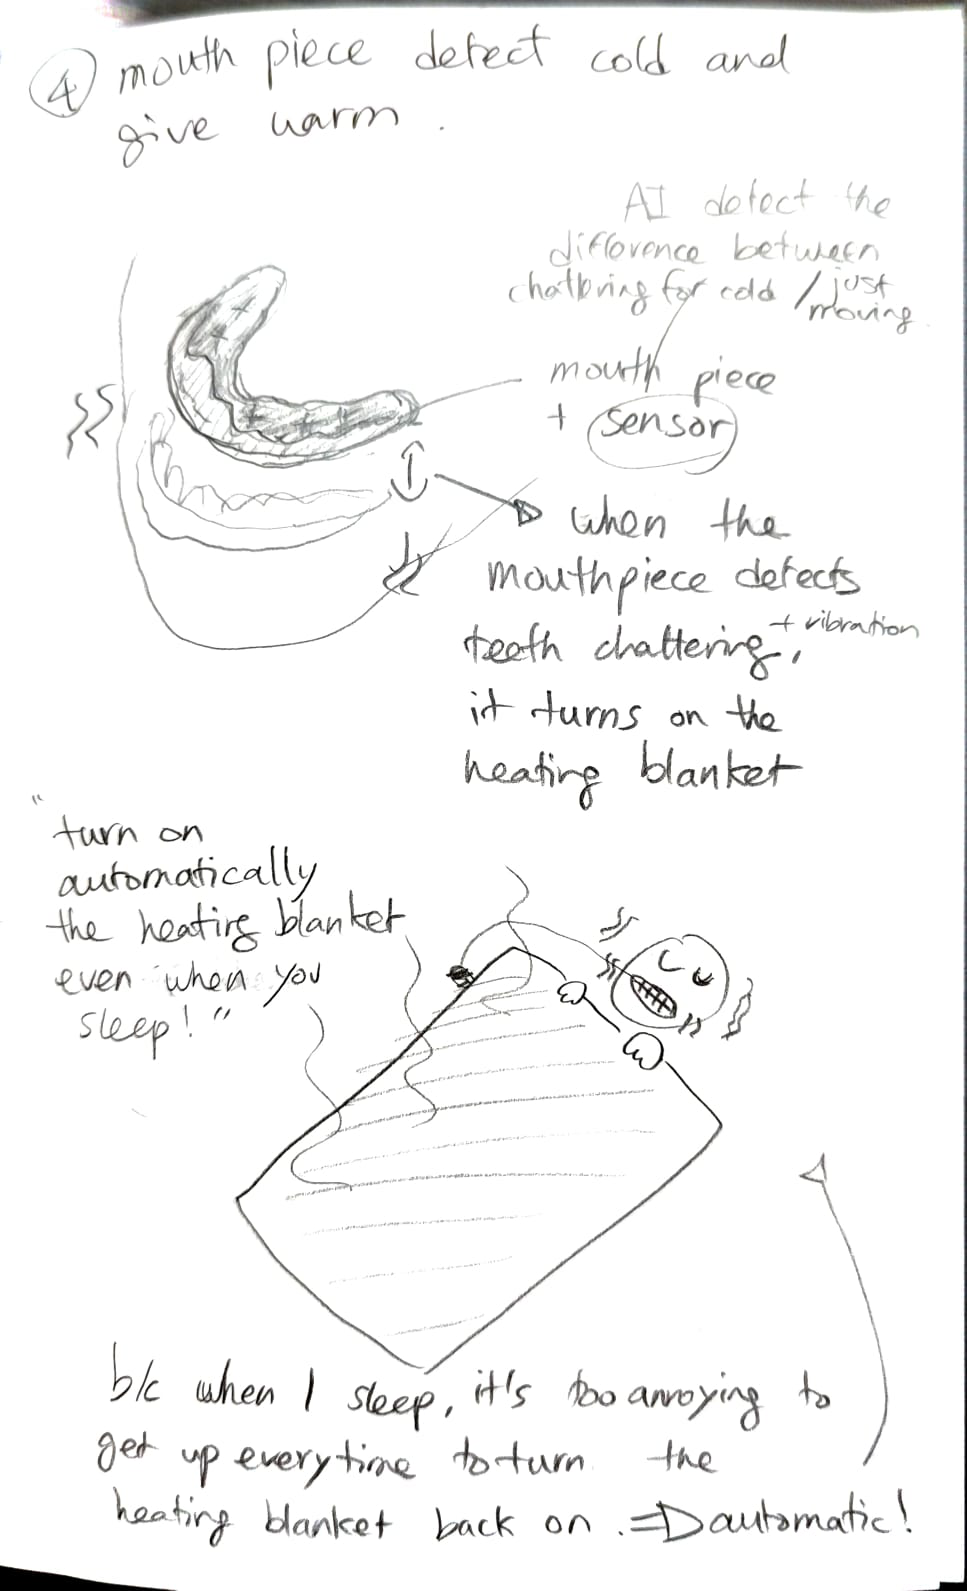 4 mouth piece detect cold and
give warm.
AI detect the
difference between
chattering for cold / just
moving.
mouth piece
+ sensor
when the
mouthpiece detects
teeth chattering, + vibration
it turns on the
heating blanket
"turn on
automatically
the heating blanket
even when you
sleep!"
b/c when I sleep, it's too annoying to
get up everytime to turn the
heating blanket back on. ⇒ automatic!